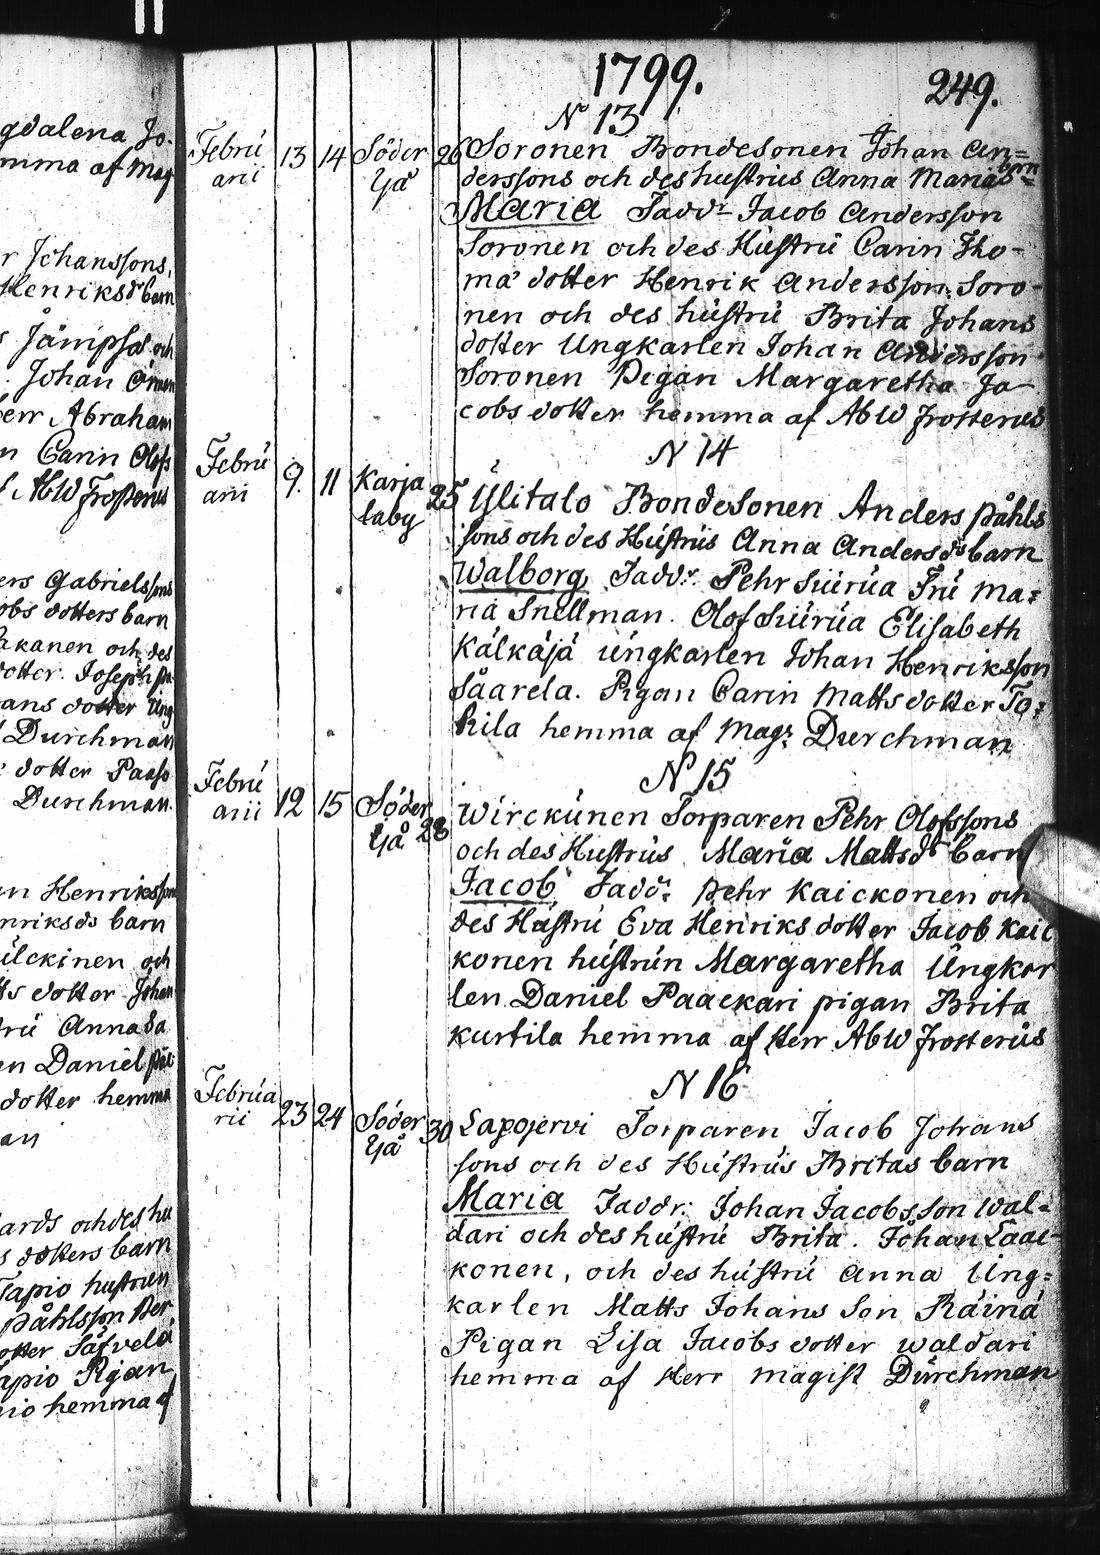 gdalena Jo-
mma af Mag
r Johanssons,
Henriksdr barn
s Jämpsa och
: Johan
err Abraham
n Carin Olofs
f ABW Frosterus
ers Gabrielssons
obs dotters barn
akanen och des
dotter. Joseph Pa
ans dotter Ung
Durchman
: dotter Paaso
Durchman.
an Henriksson
nriksds barn
ülckinen och
ts dotter Johan
trü Anna Sa
en Daniel Päi
dotter hemma
an
ards och des hu
s dotters barn
Tapio hustrun
Påhlsson Per
otter Säfvelä
apio Pigan
io hemma af
1799.
249.
N° 13
Febru
arii
13
14
Söder
Yå
26
Soronen Bondesonen Johan An=
derssons och des hustrus Anna Marias barn
Maria Faddr Jacob Andersson
Soronen och des Hustru Carin Tho-
mä dotter Henrik Andersson Soro-
nen och des hustru Brita Johans
dotter Ungkarlen Johan Andersson
Soronen Pigan Margaretha Ja
cobs dotter hemma af ABW Frosterus
N 14
Febru
arii
9.
11
Karja
laby
25
Ylitalo Bondesonen Anders Påhls
sons och des Hustrus Anna Andersds barn
Walborg Faddr. Pehr Siurua Fru Ma=
ria Snellman. Olof Siurua Elisabeth
Kälkäjä ungkarlen Johan Henriksson
Saarela. Pigan Carin Matts dotter To=
kila hemma af Magr Durchman
N 15
Febru
arii
12
15
Söder
Yå
28
Wirckunen Torparen Pehr Olofssons
och des Hustrus Maria Mattsdr barn
Jacob Faddr: Pehr Kaickonen och
des Hustru Eva Henriks dotter Jacob Kaic
konen hustrun Margaretha Ungkar
len Daniel Paackari pigan Brita
Kurtila hemma af Herr ABW Frosterus
N 16
Februa
rii
23
24
Söder
Yå
30
Lapojervi Torparen Jacob Johans
sons och des Hustrus Britas barn
Maria Faddr: Johan Jacobsson Wal=
dari och des hustru Brita. Johan Laac-
konen, och des hustru Anna Ung=
karlen Matts Johans Son Räinä
Pigan Lisa Jacobs dotter Waldari
hemma af Herr Magist Durchman